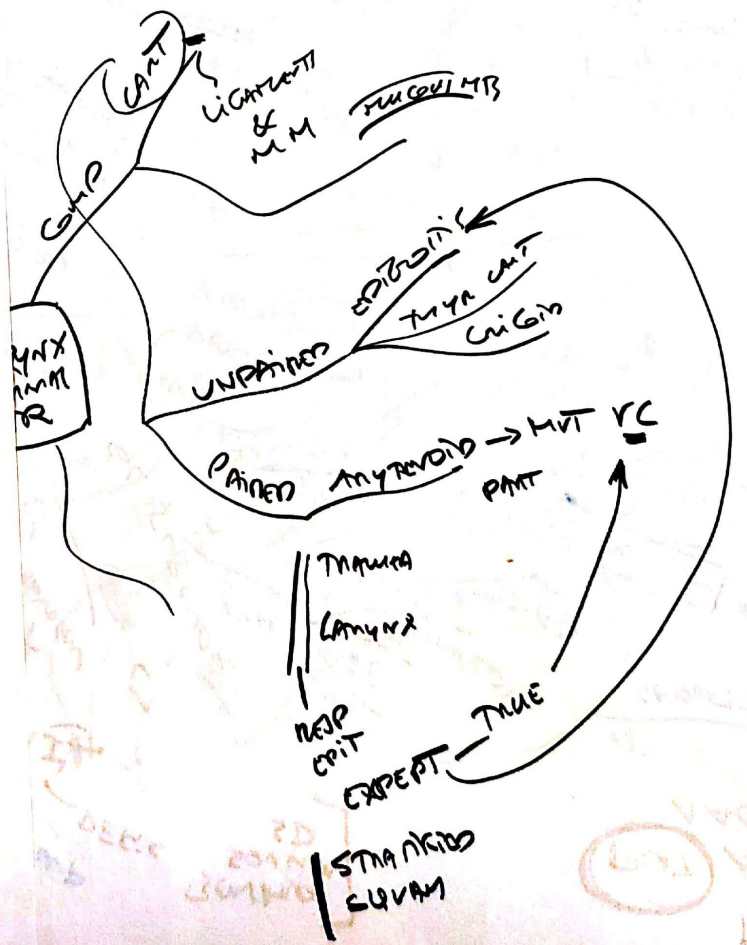 CART
LIGAMENTS
&
MM
MUCOUS MB
COMP
YNX
EPIGLOTTIS
THYR CART
CRICOID
UNPAIRED
PAIRED
ARYTENOID → MVT VC
PART
TRACHEA
LARYNX
RESP
EPIT
EXPEPT — TRUE
STRATIFIED
SQUAM